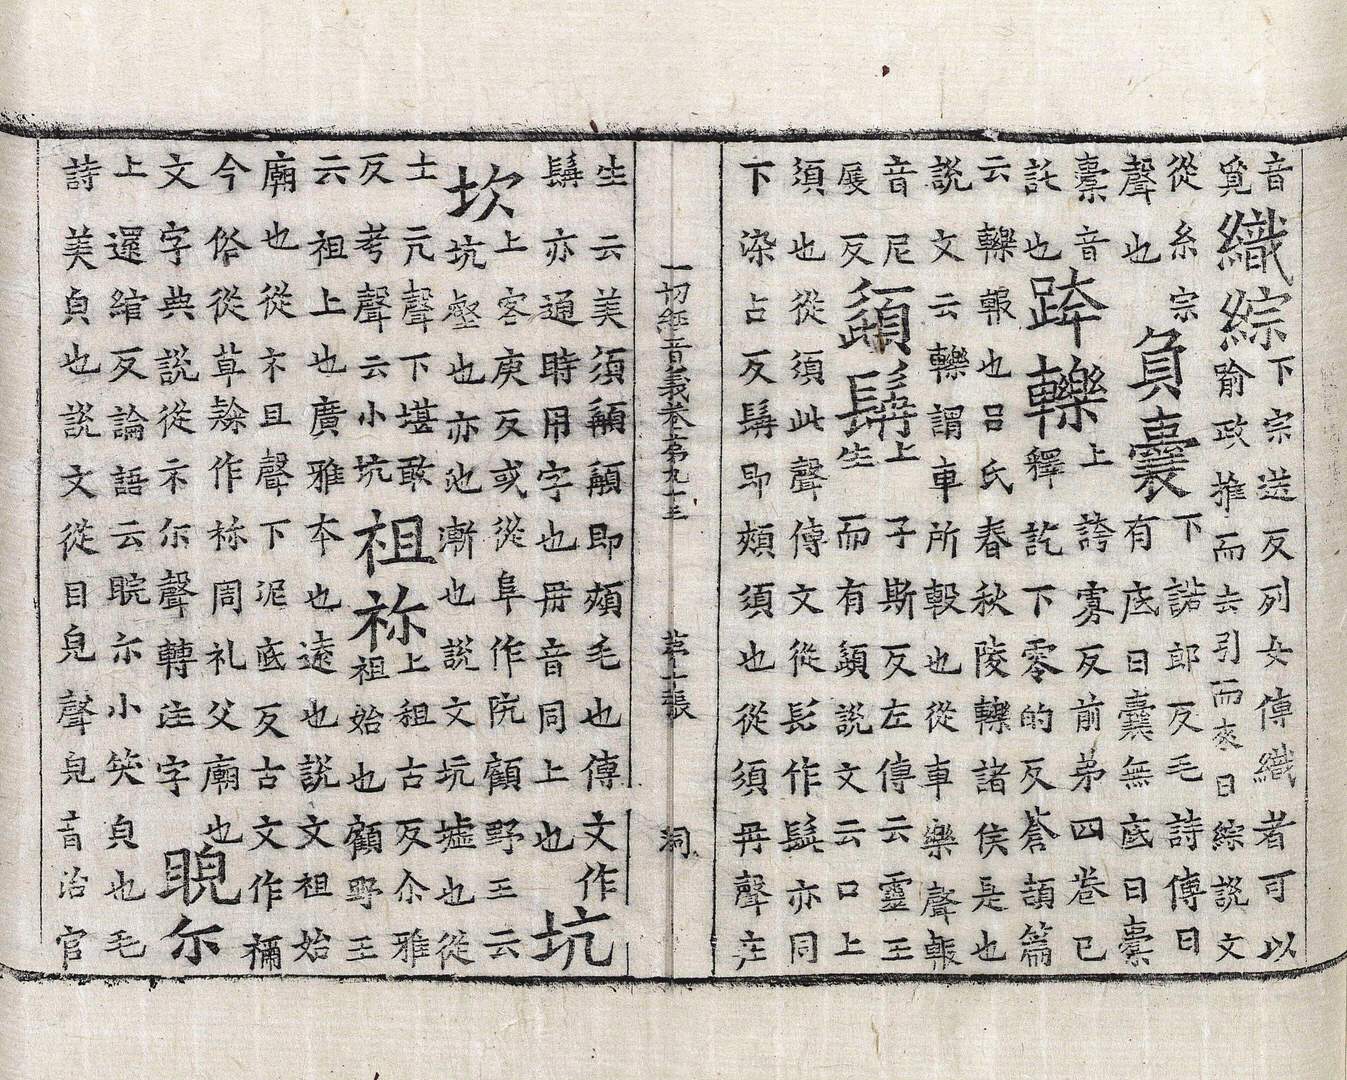 音
覓
織綜
下宗送反列女傳織者可以
喻政推而去引而來曰綜說文
從糸宗
聲也
負囊
下諾郎反毛詩傳曰
有底曰囊無底曰橐
橐音
託也
跨轢
上誇寡反前弟四卷已
釋訖下零的反蒼頡篇
云轢輾也吕氏春秋陵轢諸侯是也
說文云轢謂車所輾也從車樂聲輾
音尼
展反
頿髯
上子斯反左傳云靈王
生而有頿說文云口上
須也從須此聲傳文從髟作髭亦同
下染占反髯即頰須也從須冄聲庄
一切經音義卷第九十三 苐十張 洞
生云美須顜顜即頰毛也傳文作
髯亦通時用字也冄音同上也
坑
坎
上客庚反或從阜作阬顧野王云
坑壑也亦池漸也說文坑墟也從
士亢聲下堪敢
反考聲云小坑
祖祢
上租古反尒雅
祖始也顧野王
云祖上也廣雅本也遠也說文祖始
廟也從示且聲下泥底反古文作禰
今俗從草隸作祢周礼父廟也
文字典說從示尒聲轉注字
睕尒
上還綰反論語云睆尒小笑皃也毛
詩美皃也說文從目皃聲皃音治官